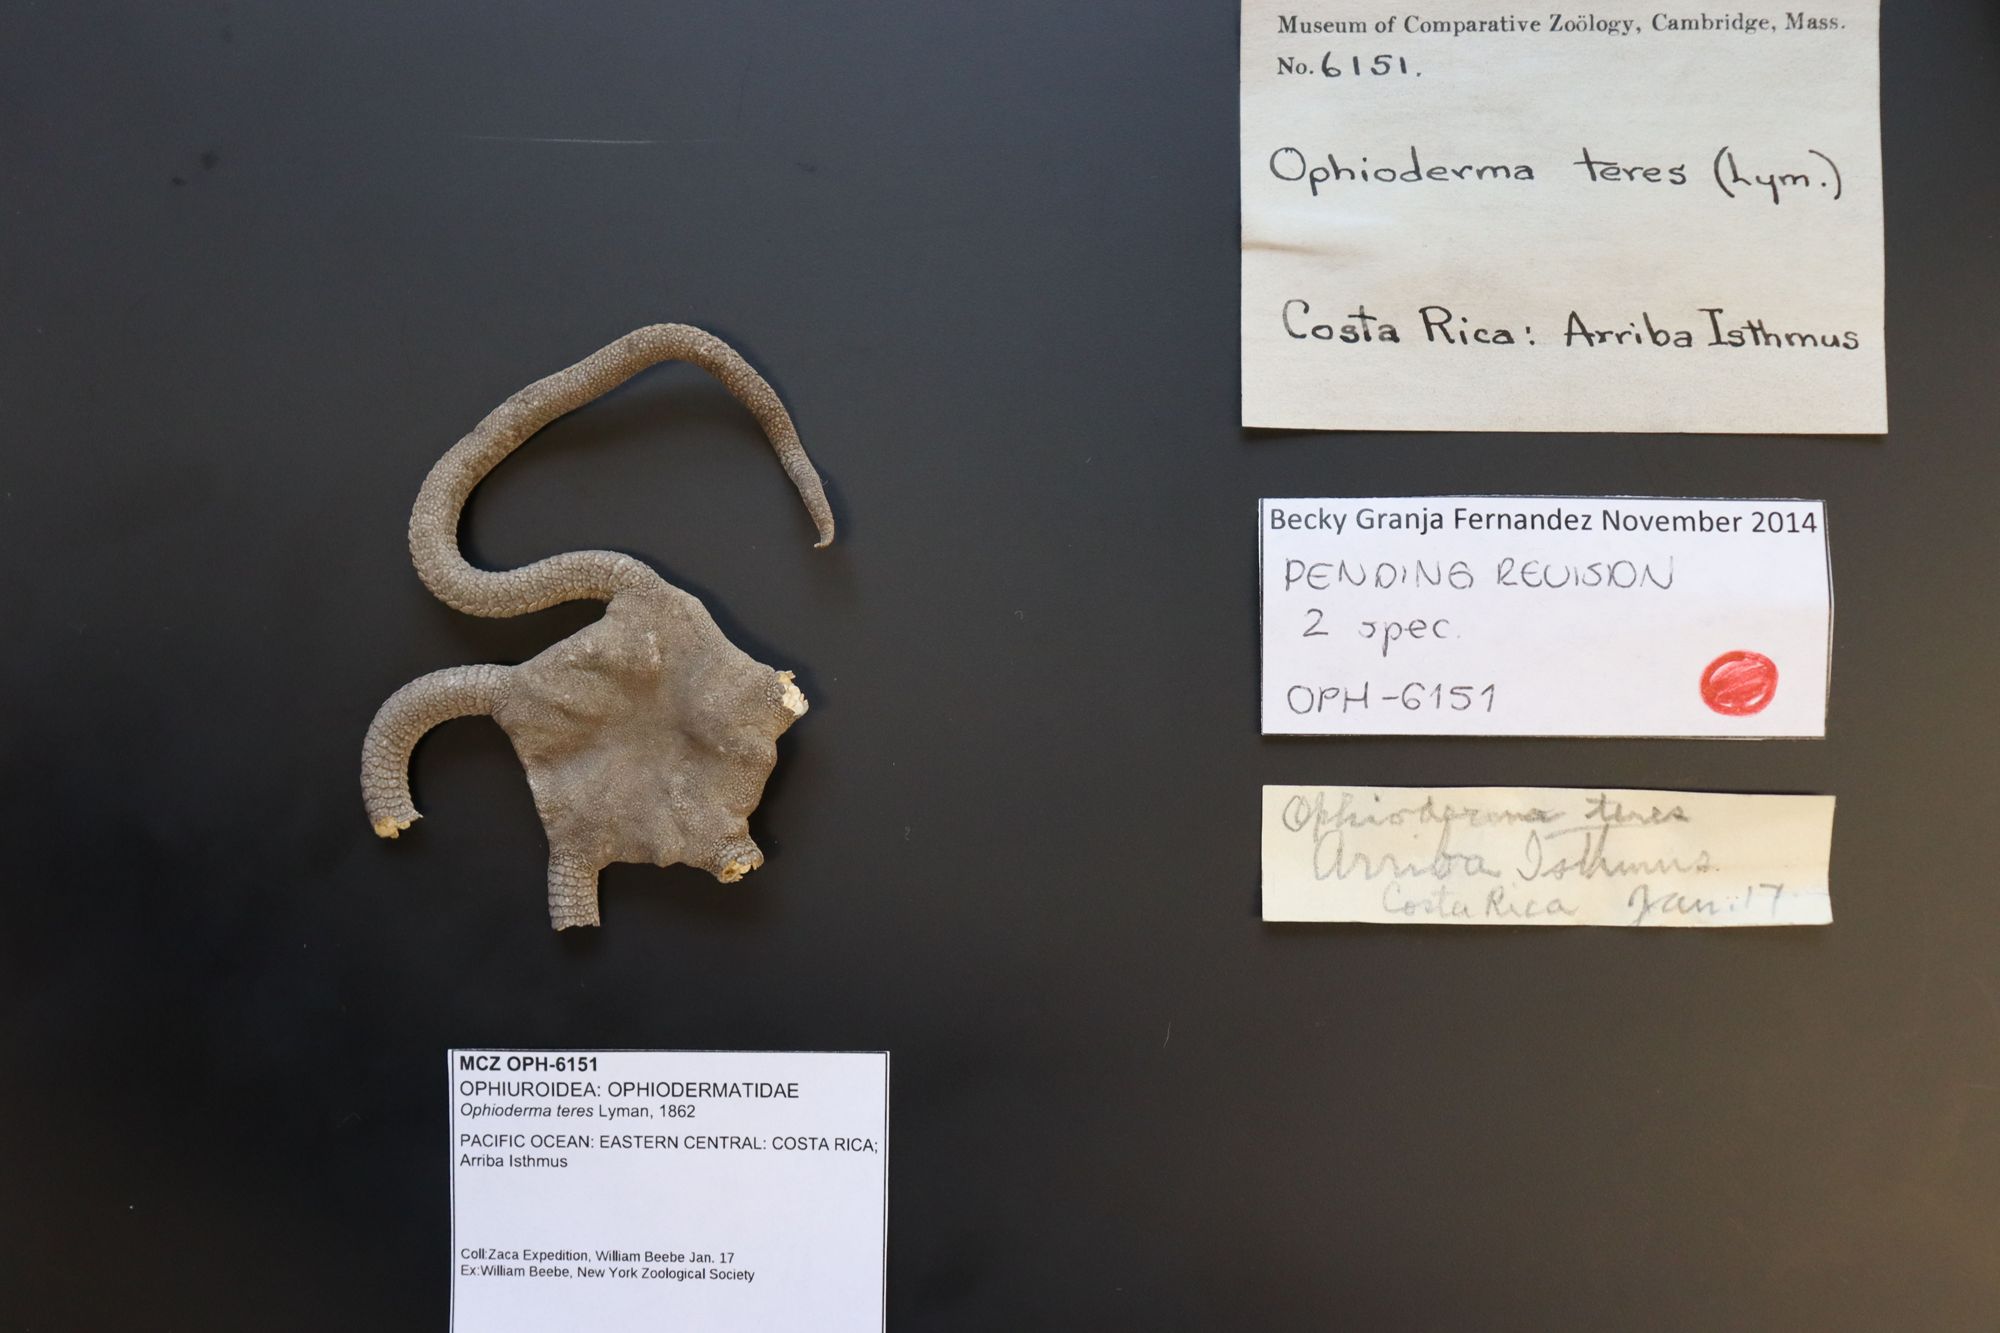 Museum of Comparative Zoölogy, Cambridge, Mass.
No. 6151.
Ophioderma teres (Lym.)
Costa Rica: Arriba Isthmus
Becky Granja Fernandez November 2014
PENDING REVISION
2 spec.
OPH-6151
Ophioderma teres
Arriba Isthmus
Costa Rica Jan. 17
MCZ OPH-6151
OPHIUROIDEA: OPHIODERMATIDAE
Ophioderma teres Lyman, 1862
PACIFIC OCEAN: EASTERN CENTRAL: COSTA RICA;
Arriba Isthmus
Coll:Zaca Expedition, William Beebe Jan. 17
Ex:William Beebe, New York Zoological Society